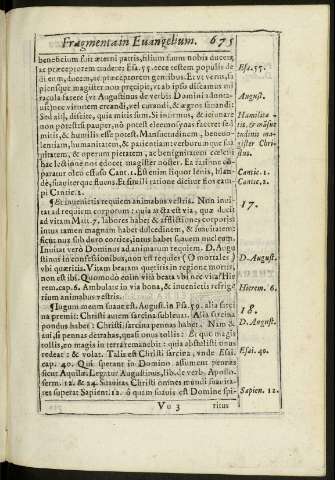 Fragmenta in Euangelium. 675
beneficium fuit æterni patris, filium suum nobis ducem,
ac præceptorem tradere: Esa. 55. ecce testem populis de
di eum, ducem, ac præceptorem gentibus. Et vt verus, sa
piensque magister non præcipit, vt ab ipso discamus mi
racula facere (vt Augustinus de verbis Domini adnota-
uit) nec virtutem creandi, vel curandi, & ægros sanandi:
Sed ait, discite, quia mitis sum. Si
non potest sit pauper, nō potest eleemosynas facere: sed
mitis, & humilis esse potest. Mansuetudinem, beneuo-
lentiam, humanitatem, & patientiam verborumque sua
uitatem, & operum pietatem, ac benignitatem cœlesti
hac lectione nos docet magister noster. Ea ratione cō
paratur oleo effuso Cant. 1. Est enim liquor lenis, blan-
dè, suauiterque fluens. Et simili ratione dicitur flos cam
pi Cantic. 2.
¶ Et inuenietis requiem animabus vestris. Non inui
tat ad requiem corporum: quia arcta est via, quæ ducit
ad vitam Matt. 7. labores habet & afflictiones corporis:
intus tamen magnam habet dulcedinem, & suauitatem:
sicut nux sub duro cortice, intus habet suauem nucleum.
Inuitat vero Dominus ad animarum requiem. D. Augu
stinus in confessionibus, non est requies (O mortales)
vbi quæritis. Vitam beatam quæritis in regione mortis,
non est ibi. Quomodo enim vita beata vbi nec vita? Hie
rem. cap. 6. Ambulate in via bona, & inuenietis refrige
rium animabus vestris.
¶ Iugum meum suaue est. August. in Ps. 59. alia sarci
na premit: Christi autem sarcina subleuat. Alia sarcina
pondus habet: Christi sarcina pennas habet. Nam &
aui, si pennas detrahas, quasi onus tollis: Et quo magis
tollis, eo magis in terra remanebit: quia abstulisti onus,
redeat: & volat. Talis est Christi sarcina, vnde Esai.
cap. 40. Qui sperant in Domino assument pennas
sicut Aquilæ. Legatur Augustinus, lib. de verb. Aposto.
serm. 12. & 24. Suauitas Christi omnes mundi suauita-
tes superat Sapient. 12. ô quàm suauis est Domine spi-
Vu 3 ritus
Esa. 55.
August.
Humilita
tis, & mãsue
tudinis ma
gister Chri
stus.
Cantic. 1.
Cantic. 2.
17.
D. August.
Hierem. 6.
18.
D. August.
Esai. 40.
Sapien. 12.